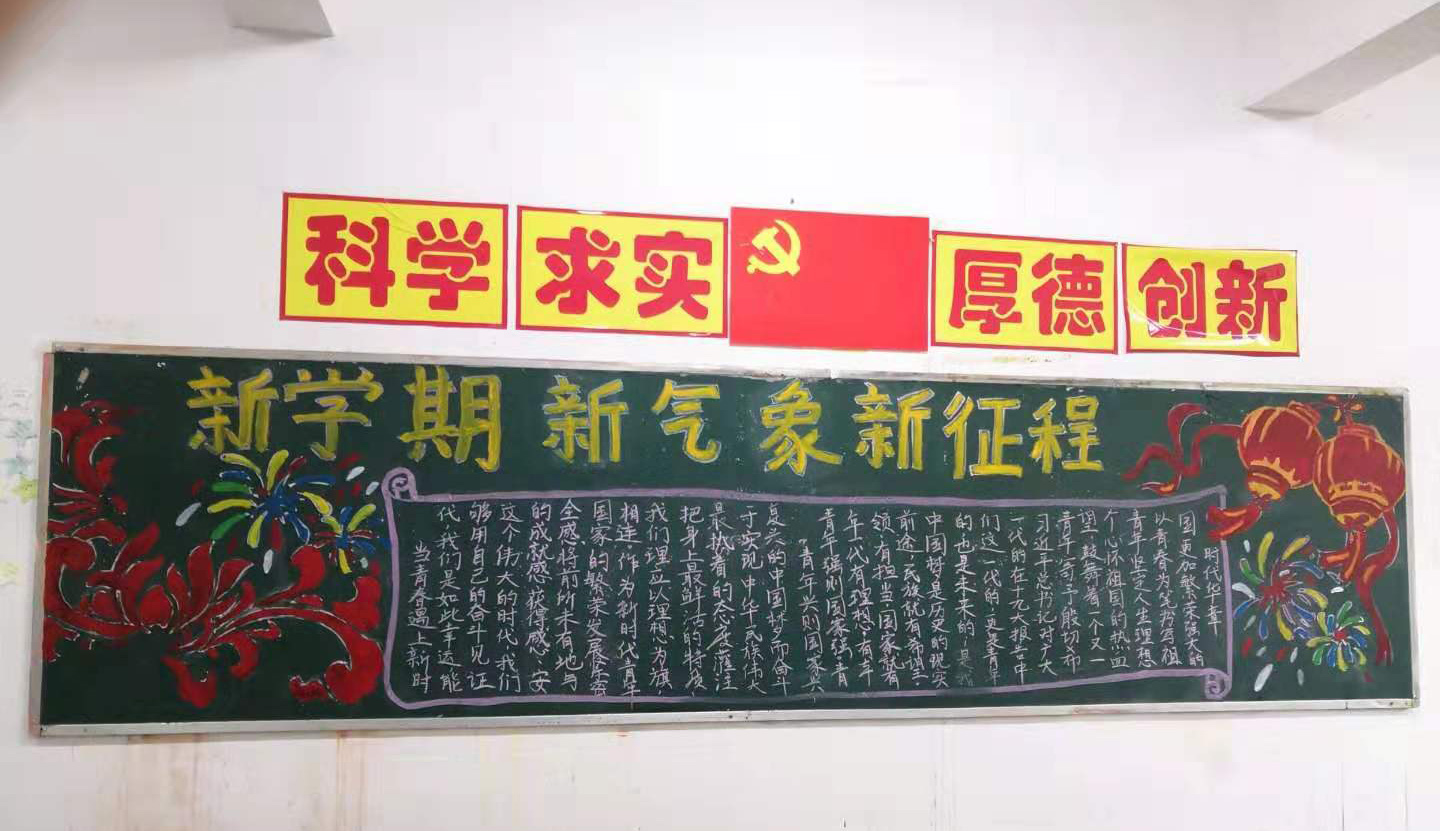 科学 求实 厚德 创新
新学期 新气象 新征程
当青春遇上新时
代,我们是如此幸运,能
够用自己的奋斗见证
这个伟大的时代,我们
的成就感、获得感、安
全感,将前所未有地与
国家的繁荣发展
相连,作为新时代青年
我们理应以理想为旗,
把身上最鲜活的特质,
最执着的态度,灌注
于实现中华民族伟大
复兴的中国梦而奋斗
“青年兴则国家兴,
青年强则国家强,青
年一代有理想、有本
领、有担当,国家就有
前途,民族就有希望,
中国梦是历史的、现实
的,也是未来的,是我
们这一代的,更是青年
一代的在十九大报告中
习近平总书记对广大
青年寄予殷切希
望,鼓舞着一个又一
个心怀祖国的热血
青年坚定人生理想
以青春为笔抒写祖
国更加繁荣强大的
时代华章